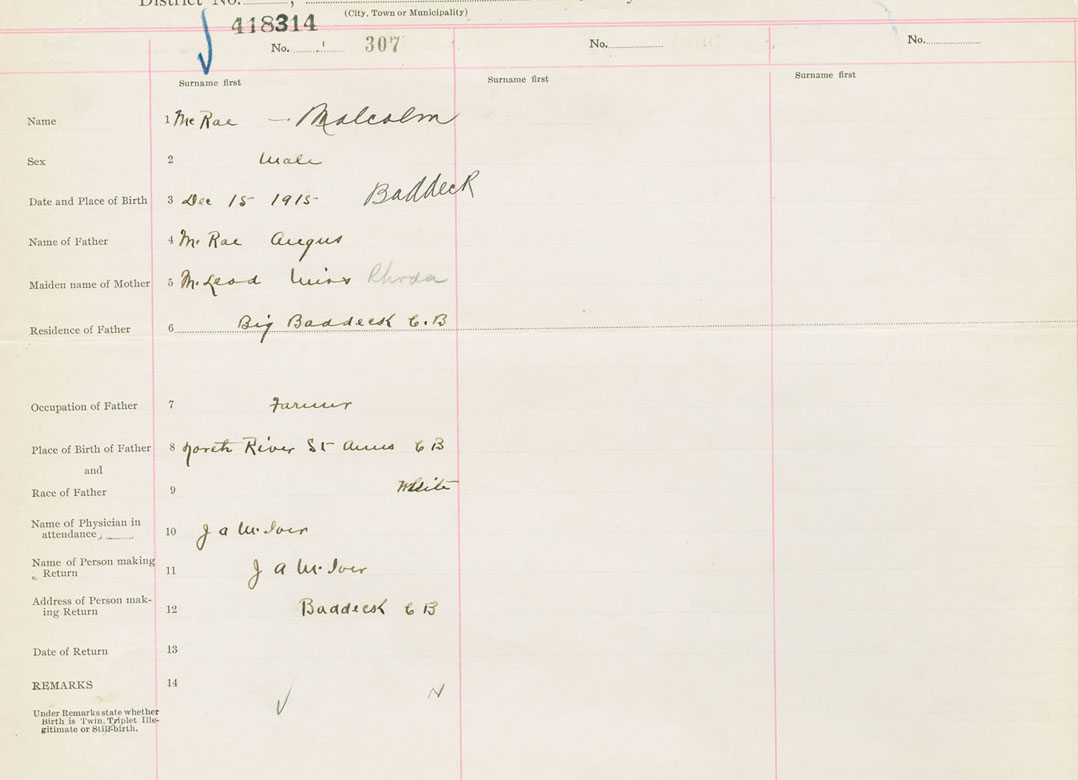 District No. ,
(City, Town or Municipality)
418314
No. 307 No. No.
Surname first Surname first Surname first
Name 1 McRae — Malcolm
Sex 2 Male
Date and Place of Birth 3 Dec 15 1915 Baddeck
Name of Father 4 McRae Angus
Maiden name of Mother 5 McLeod Miss Rhoda
Residence of Father 6 Big Baddeck C.B
Occupation of Father 7 Farmer
Place of Birth of Father 8 North River St Anns C B
and
Race of Father 9 White
Name of Physician in
attendance, 10 J A McIver
Name of Person making
Return 11 J A McIver
Address of Person mak-
ing Return 12 Baddeck C B
Date of Return 13
REMARKS 14
N
Under Remarks state whether
Birth is Twin, Triplet Ille-
gitimate or Still-birth.